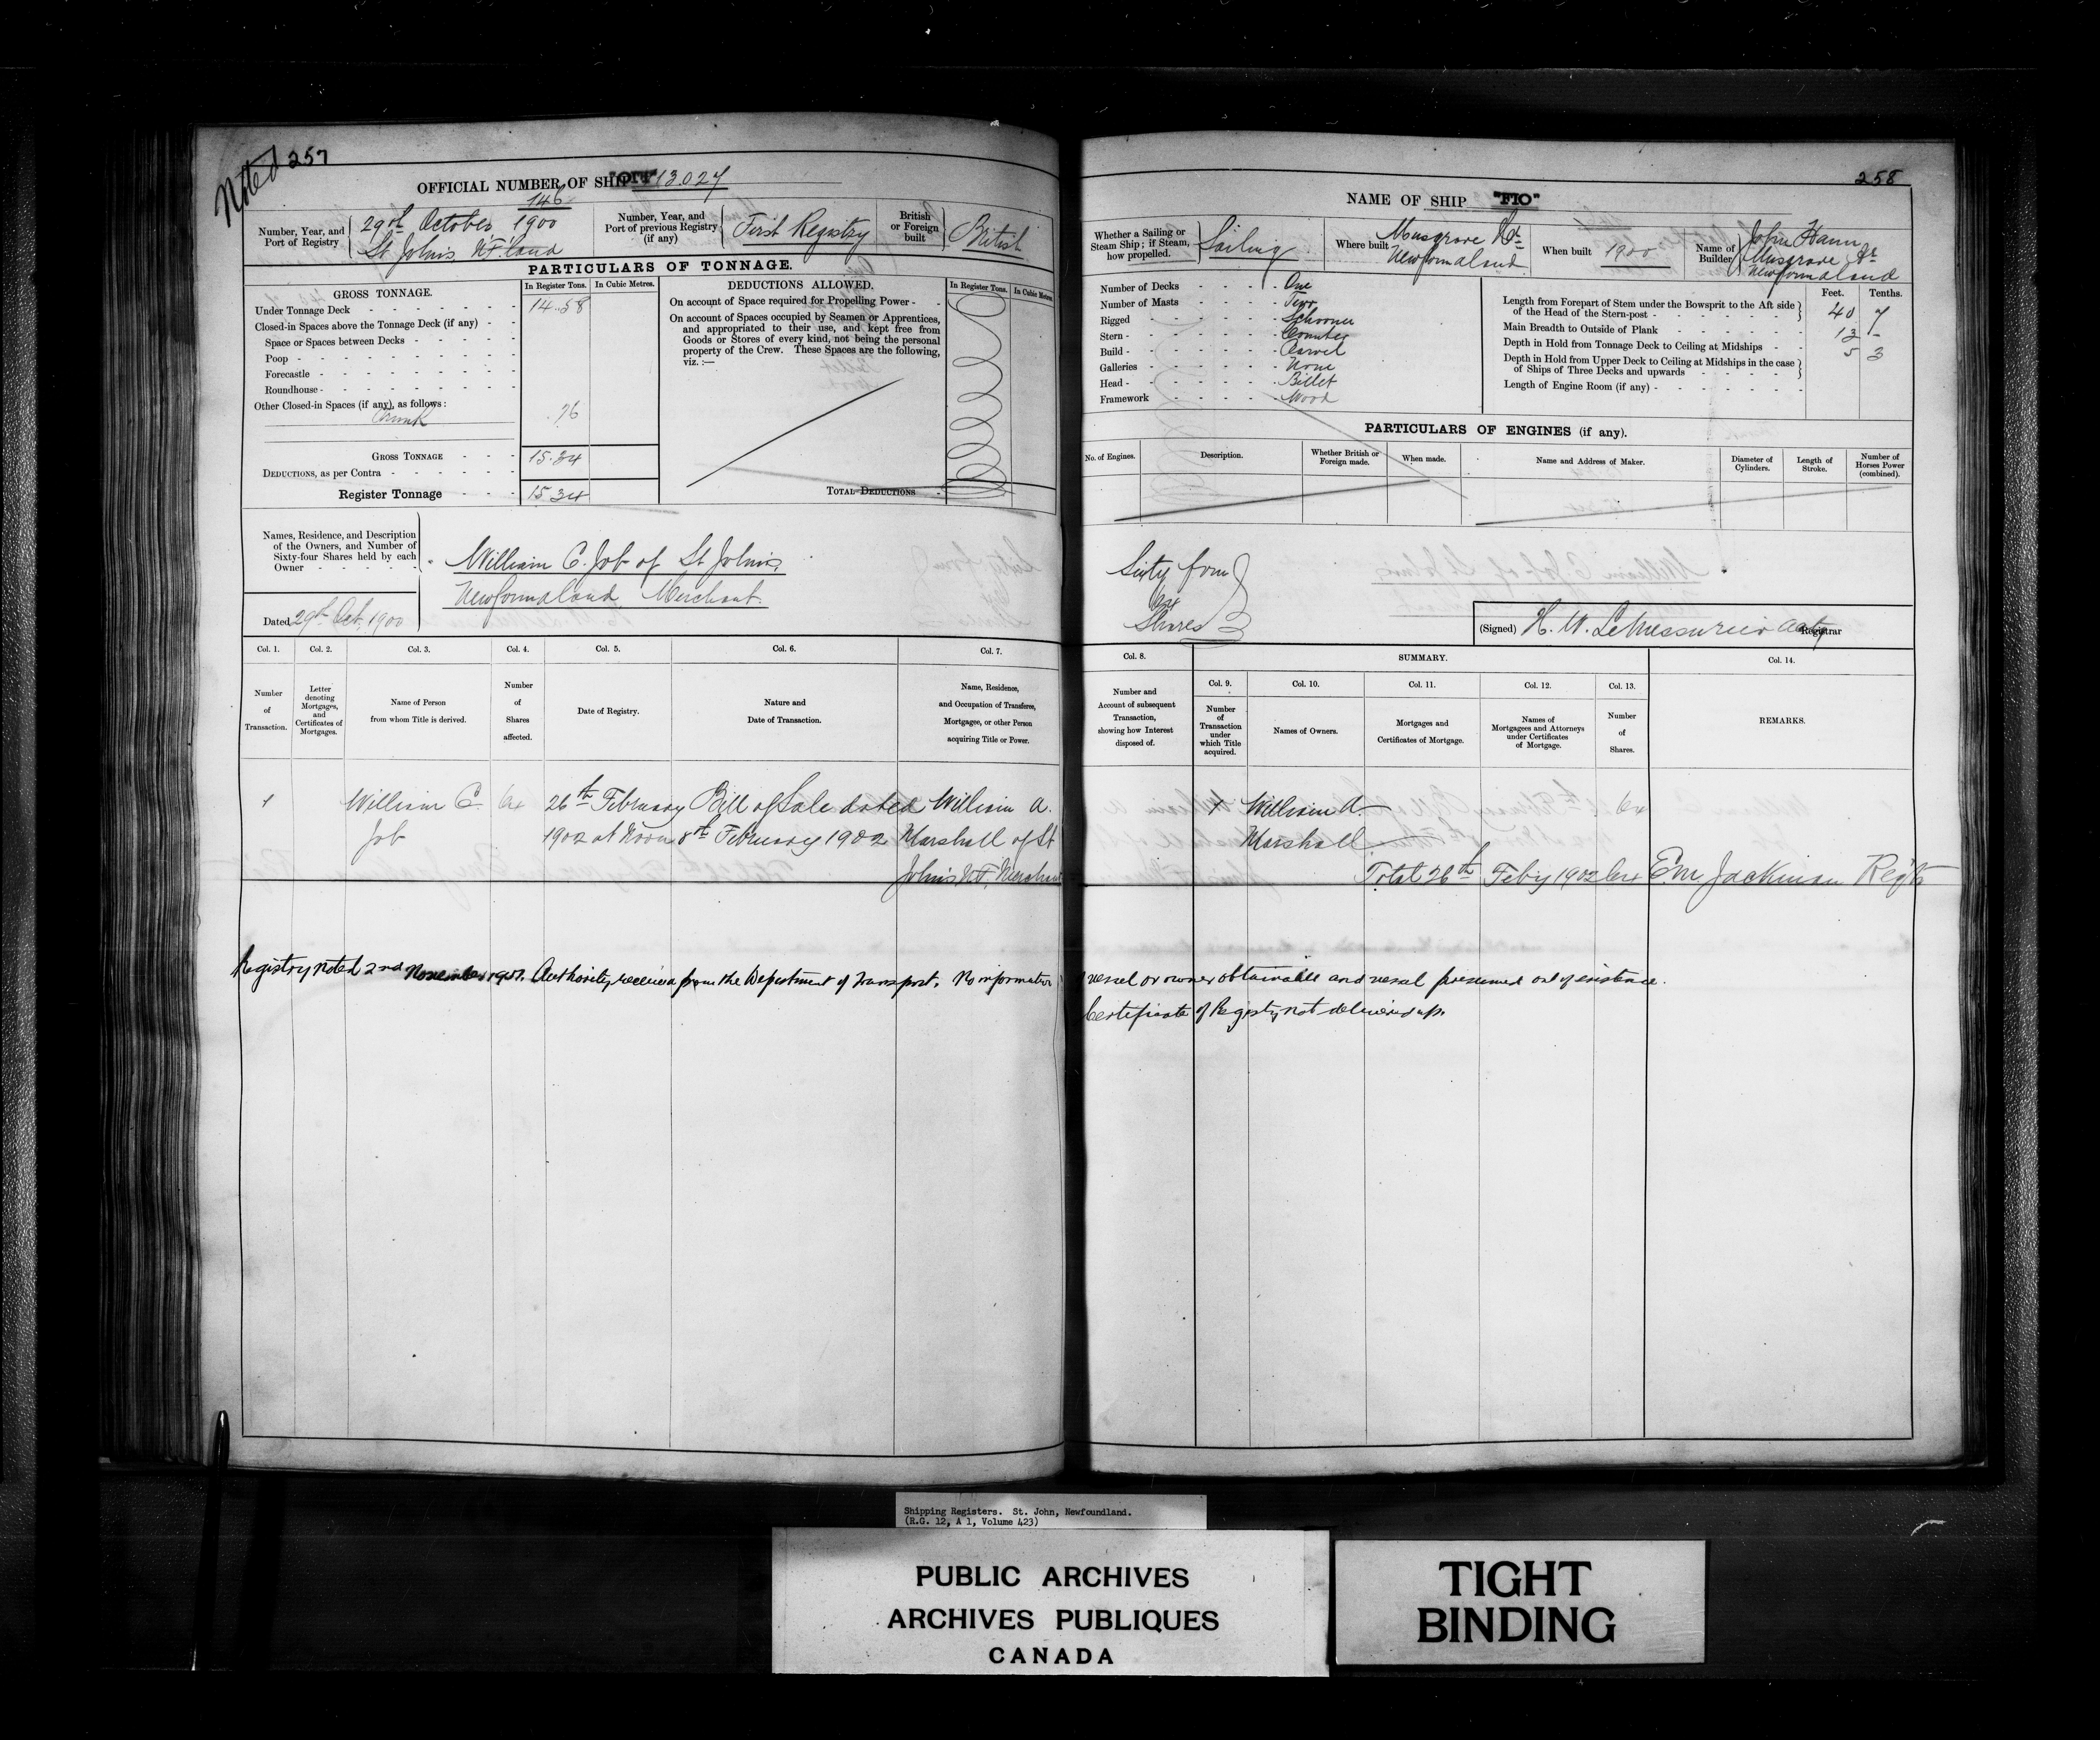 Noted 257
OFFICIAL NUMBER OF SHIP 113.027
146
Number, Year, and Port of Registry
29th October, 1900
St John's Nf.land
Number, Year, and Port of previous Registry (if any)
First Registry
British or Foreign built
British
PARTICULARS OF TONNAGE.
GROSS TONNAGE.
In Register Tons. In Cubic Metres.
Under Tonnage Deck 14.58
Closed-in Spaces above the Tonnage Deck (if any)
Space or Spaces between Decks
Poop
Forecastle
Roundhouse
Other Closed-in Spaces (if any), as follows:
Trunk .76
GROSS TONNAGE 15.34
DEDUCTIONS, as per Contra
Register Tonnage 15.34
DEDUCTIONS ALLOWED.
In Register Tons. In Cubic Metres.
On account of Space required for Propelling Power
On account of Spaces occupied by Seamen or Apprentices,
and appropriated to their use, and kept free from
Goods or Stores of every kind, not being the personal
property of the Crew. These Spaces are the following,
viz. :—
TOTAL DEDUCTIONS
Names, Residence, and Description
of the Owners, and Number of
Sixty-four Shares held by each
Owner
William C. Job of St John's,
Newfoundland Merchant.
Dated 29th Oct. 1900
Col. 1. Col. 2. Col. 3. Col. 4. Col. 5. Col. 6. Col. 7.
Number of Transaction.
Letter denoting Mortgages, and Certificates of Mortgages.
Name of Person from whom Title is derived.
Number of Shares affected.
Date of Registry.
Nature and Date of Transaction.
Name, Residence, and Occupation of Transferee, Mortgagee, or other Person acquiring Title or Power.
1 William C. 64 26th February Bill of Sale dated William A.
Job 1902 at Noon 8th February 1902 Marshall of St
John's NF, Merchant
258
NAME OF SHIP "FIO"
Whether a Sailing or Steam Ship; if Steam, how propelled.
Sailing
Where built
Musgrove Hr
Newfoundland
When built 1900
Name of Builder
John Hann
Musgrove Hr
Newfoundland
Number of Decks One
Number of Masts Two
Rigged Schooner
Stern Counter
Build Carvel
Galleries None
Head Billet
Framework Wood
Feet. Tenths.
Length from Forepart of Stem under the Bowsprit to the Aft side
of the Head of the Stern-post 40 7
Main Breadth to Outside of Plank 13 -
Depth in Hold from Tonnage Deck to Ceiling at Midships 5 3
Depth in Hold from Upper Deck to Ceiling at Midships in the case
of Ships of Three Decks and upwards
Length of Engine Room (if any)
PARTICULARS OF ENGINES (if any).
No. of Engines. Description. Whether British or Foreign made. When made. Name and Address of Maker. Diameter of Cylinders. Length of Stroke. Number of Horses Power (combined).
Sixty four
64
Shares
(Signed) H. W. LeMessurier Registrar
Col. 8. SUMMARY. Col. 14.
Col. 9. Col. 10. Col. 11. Col. 12. Col. 13.
Number and Account of subsequent Transaction, showing how Interest disposed of.
Number of Transaction under which Title acquired.
Names of Owners.
Mortgages and Certificates of Mortgage.
Names of Mortgagees and Attorneys under Certificates of Mortgage.
Number of Shares.
REMARKS.
1 William A. 64
Marshall
Total 26th Feby 1902 64 E.M. Jackman Regtr
Registry noted 2nd November 1951. Authority received from the Department of Transport. No information vessel or owner obtainable and vessel presumed out of existence.
Certificate of Registry not delivered up.
Shipping Registers. St. John, Newfoundland.
(R.G. 12, A 1, Volume 423)
PUBLIC ARCHIVES
ARCHIVES PUBLIQUES
CANADA
TIGHT
BINDING